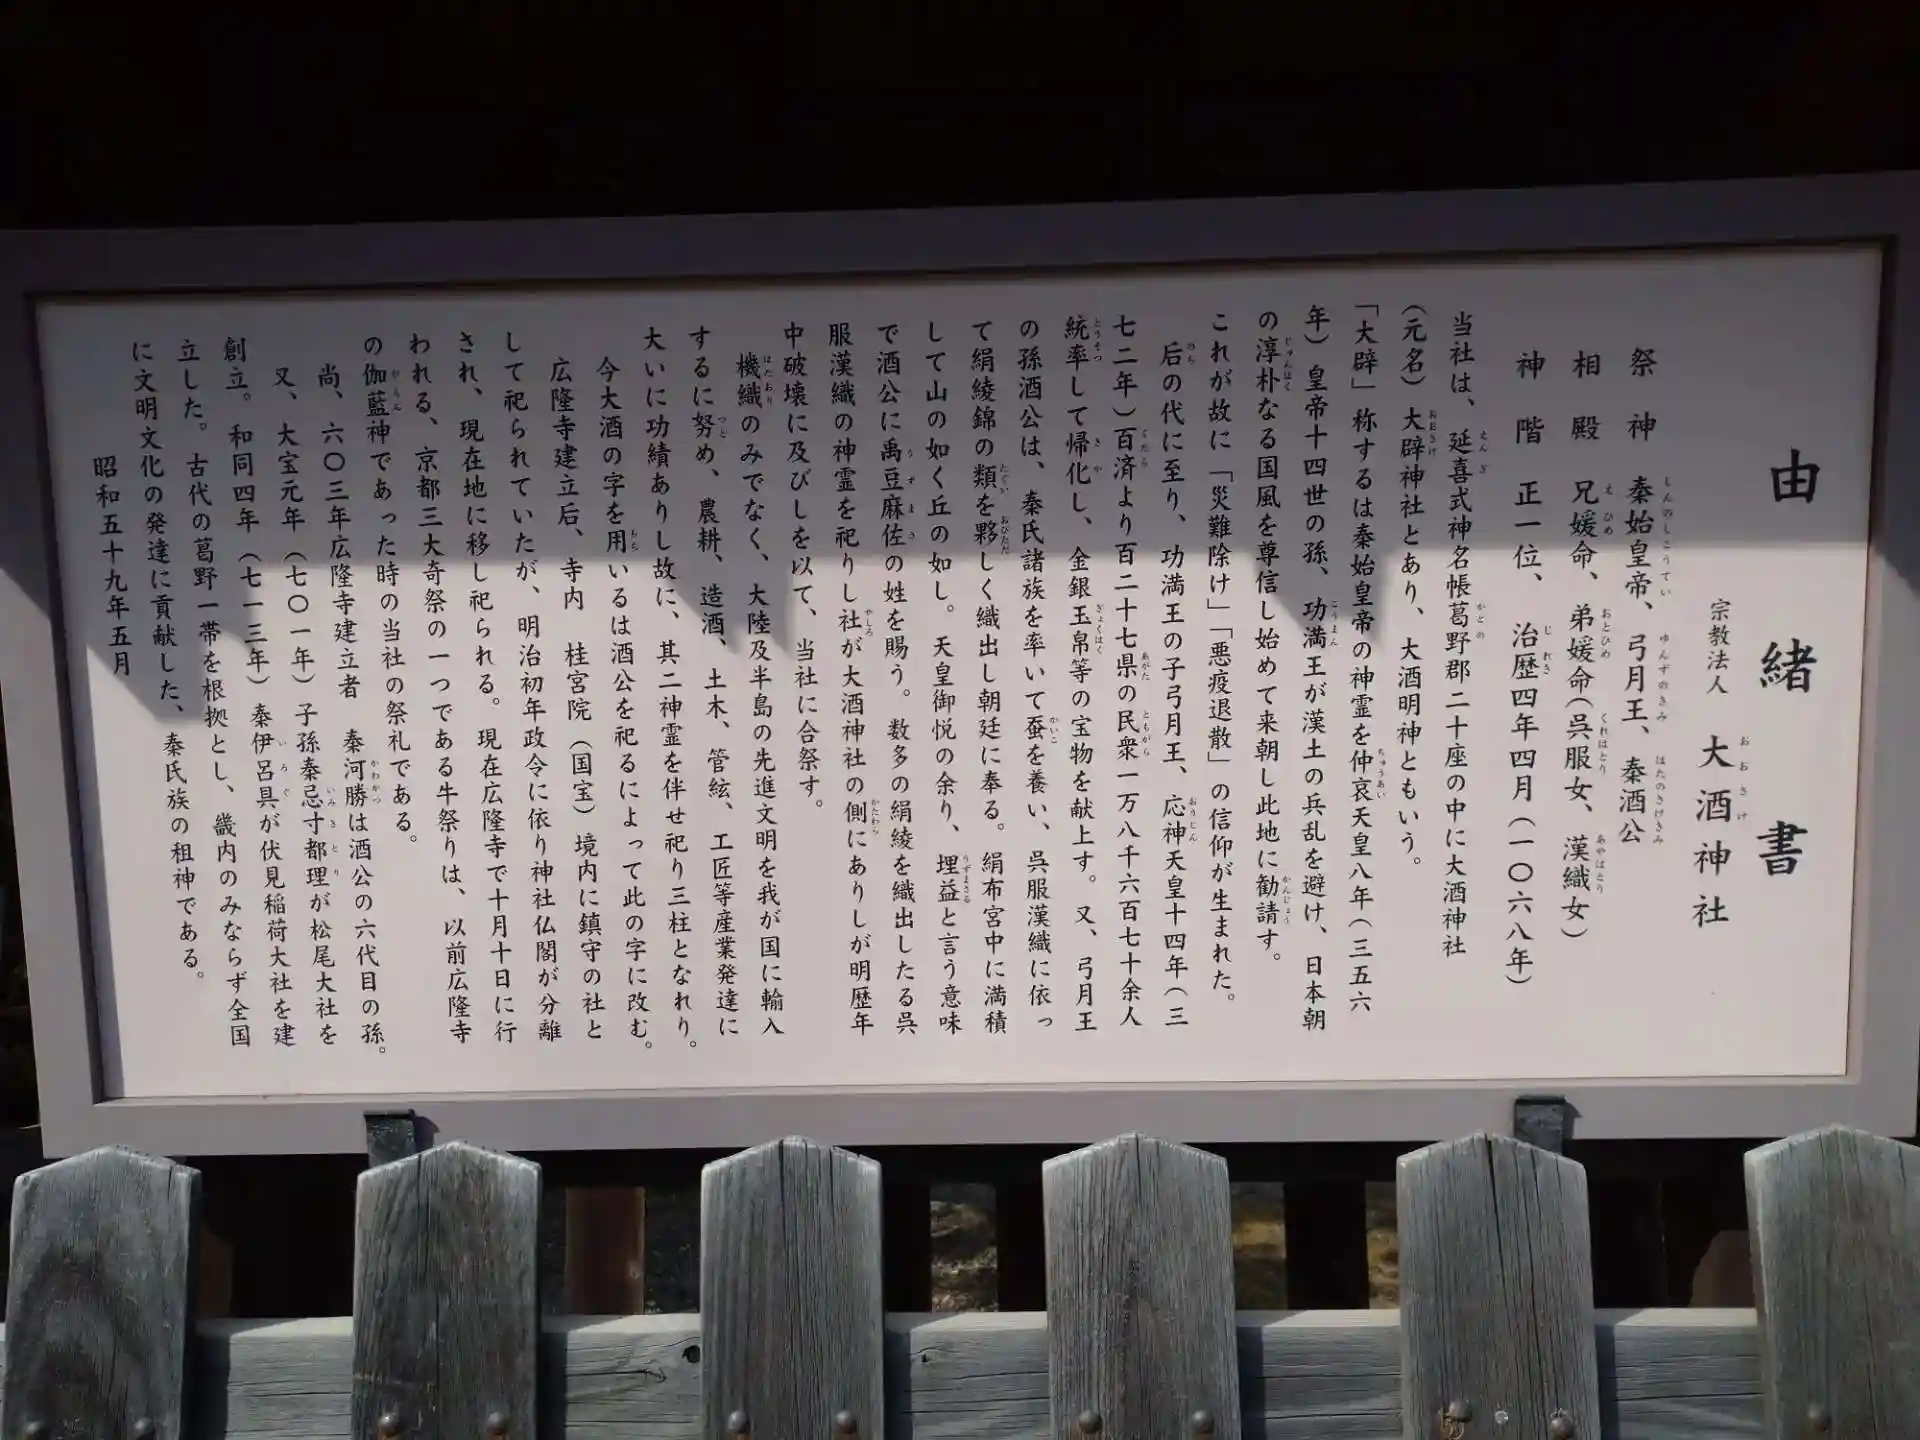 由緒書
宗教法人 大酒神社
祭神 秦始皇帝、弓月王、秦酒公
相殿 兄媛命、弟媛命(呉服女、漢織女)
神階 正一位、治歴四年四月(一〇六八年)
当社は、延喜式神名帳葛野郡二十座の中に大酒神社
(元名)大辟神社とあり、大酒明神ともいう。
「大辟」称するは秦始皇帝の神霊を仲哀天皇八年(三五六
年)皇帝十四世の孫、功満王が漢土の兵乱を避け、日本朝
の淳朴なる国風を尊信し始めて来朝し此地に勧請す。
これが故に「災難除け」「悪疫退散」の信仰が生まれた。
后の代に至り、功満王の子弓月王、応神天皇十四年(三
七二年)百済より百二十七県の民衆一万八千六百七十余人
統率して帰化し、金銀玉帛等の宝物を献上す。又、弓月王
の孫酒公は、秦氏諸族を率いて蚕を養い、呉服漢織に依っ
て絹綾錦の類を夥しく織出し朝廷に奉る。絹布宮中に満積
して山の如く丘の如し。天皇御悦の余り、埋益と言う意味
で酒公に禹豆麻佐の姓を賜う。数多の絹綾を織出したる呉
服漢織の神霊を祀りし社が大酒神社の側にありしが明歴年
中破壊に及びしを以て、当社に合祭す。
機織のみでなく、大陸及半島の先進文明を我が国に輸入
するに努め、農耕、造酒、土木、管絃、工匠等産業発達に
大いに功績ありし故に、其二神霊を伴せ祀り三柱となれり。
今大酒の字を用いるは酒公を祀るによって此の字に改む。
広隆寺建立后、寺内 桂宮院(国宝)境内に鎮守の社と
して祀られていたが、明治初年政令に依り神社仏閣が分離
され、現在地に移し祀られる。現在広隆寺で十月十日に行
われる、京都三大奇祭の一つである牛祭りは、以前広隆寺
の伽藍神であった時の当社の祭礼である。
尚、六〇三年広隆寺建立者 秦河勝は酒公の六代目の孫。
又、大宝元年(七〇一年)子孫秦忌寸都理が松尾大社を
創立。和同四年(七一三年)秦伊呂具が伏見稲荷大社を建
立した。古代の葛野一帯を根拠とし、畿内のみならず全国
に文明文化の発達に貢献した、秦氏族の租神である。
昭和五十九年五月